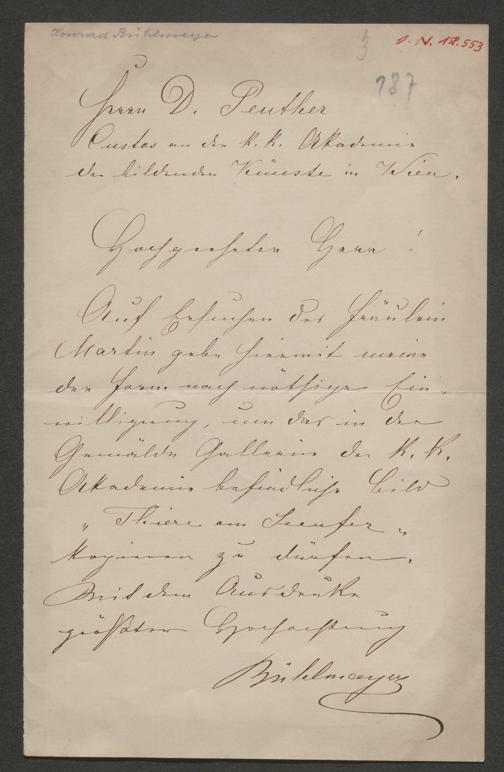 Konrad Bühlmeyer
3
J. N. 18.553
187
Herrn D. Penther
Custos an der k. k. Akademie
der bildenden Künste in Wien.
Hochgeehrter Herr!
Auf Ersuchen des Fräulein
Martin gebe hiermit meine
der Form nach nöthige Ein-
willigung, um das in der
Gemälde Gallerie der k. k.
Akademie befindliche Bild
„Thiere am Seeufer„
kopieren zu dürfen.
Mit dem Ausdrucke
größter Hochachtung
Bühlmeyer